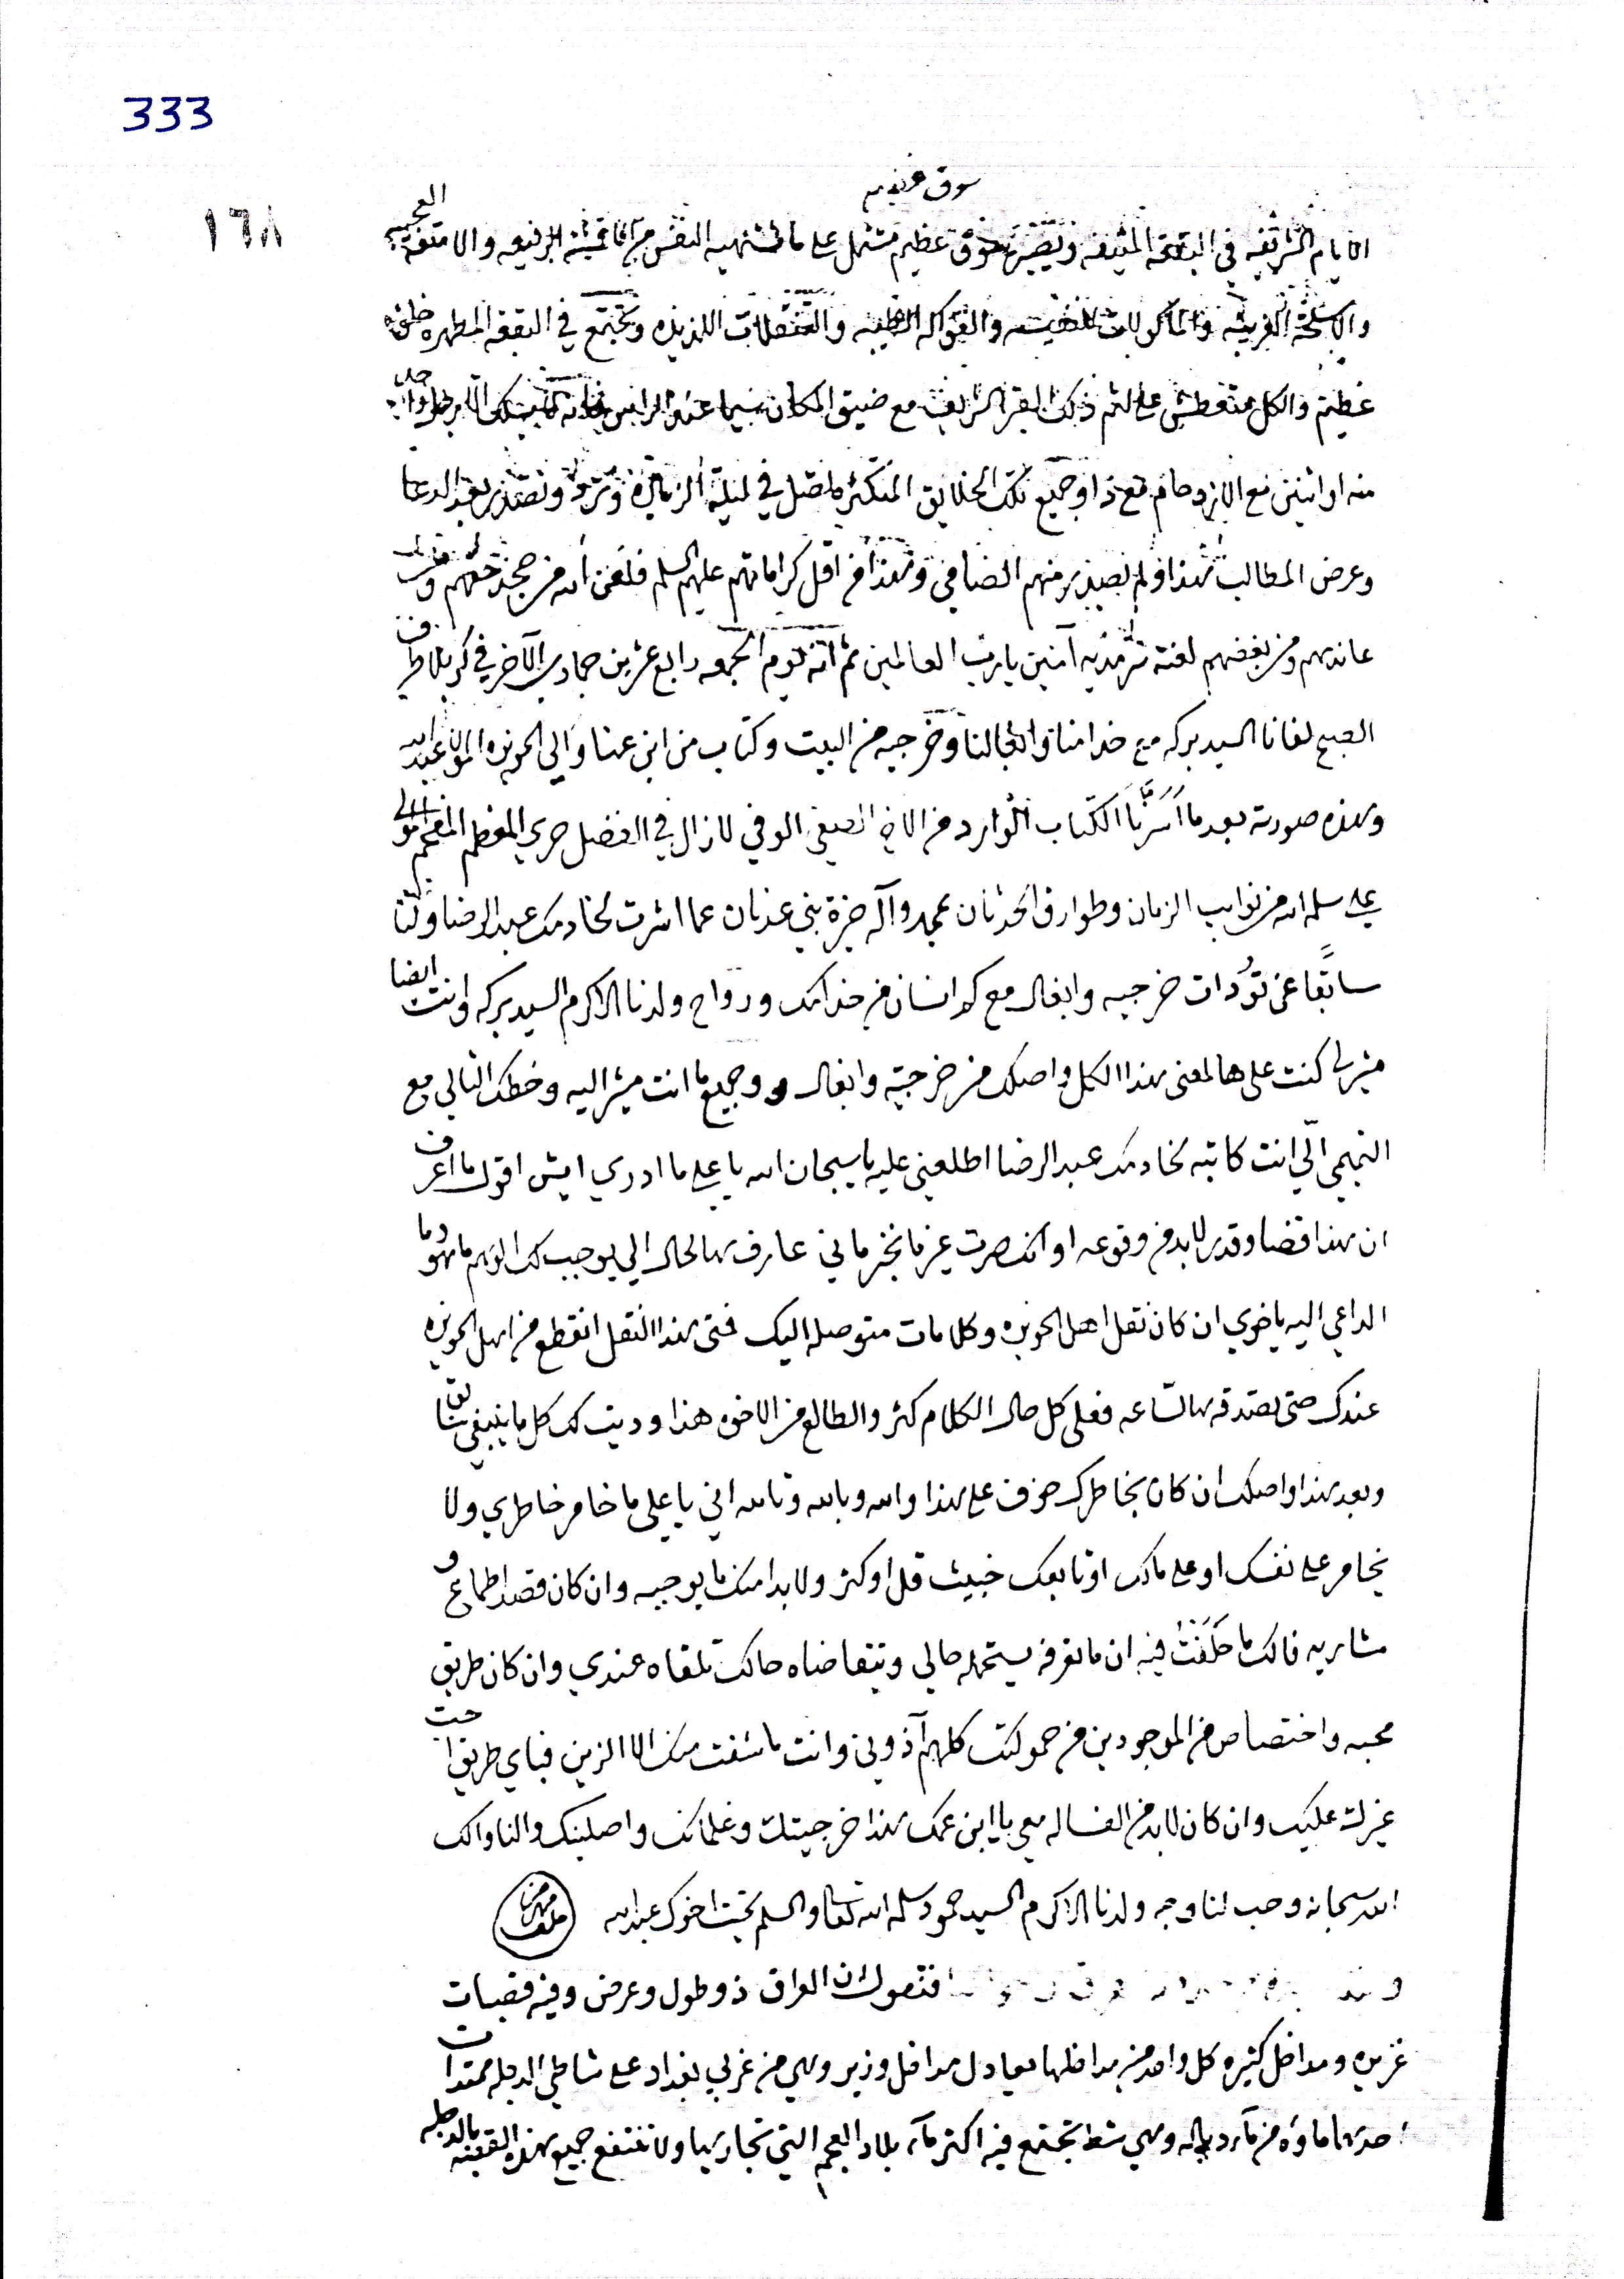 333
١٦٨
سوق عظيم
الايام الشريفه في البقعة المنيفه ويصير سوق عظيم مشتمل على ما تشتهيه النفس من الاقمشة الرفيعه والامتعة العجيبه
والاسلحة الغريبه والماكولات النفيسه والفواكه الطيبه والتنقلات اللذيذه وتجتمع في البقعة المطهره خلق
عظيم والكل متعطش على لثم ذلك القبر الشريف مع ضيق المكان سيما عند الراس
منه او اثنين مع الازدحام مع ذا وجميع تلك الخلايق المتكثره تحصل في ليلة الزيارة وتزور وتصدر بعد الدعا
وعرض المطالب هذا ولم يصدر منهم التضامي وهذا من اقل كراماتهم عليهم السلم فلعن الله من جحد حقهم ومن
عاندهم ومن بغضهم لعنة سرمديه آمين يا رب العالمين ثم انه يوم الجمعه رابع عشرين جمادى الآخر في كربلا طرف
الصبح لفانا السيد بركه مع خدامنا وابغالنا وخرجيه من البيت وكتاب من ابن عمنا والي الحويزه المولى عبد الله
وهذه صورته بعد ما اسرنا الكتاب الوارد من الاخ الصفي الوفي لا زال في الفضل حري المعظم المفخم المولى
علي سلمه الله من نوايب الزمان وطوارق الحدثان بمحمد وآله خيرة بني عدنان عما اشرت لخادمك عبد الرضا ولنا
سابقًا عن تؤدات خرجيه وابغال مع كم انسان من خدامك ورواح ولدنا الاكرم السيد بركه وانت ايضا
مشير لي كنت على هالمعنى هذا الكل واصلك من خرجيته وابغال و وجميع ما انت مشير اليه وخطك التالي مع
التميمي الّي انت كاتبه لخادمك عبد الرضا اطلعني عليه يا سبحان الله يا علي ما ادري ايش اقول ما اعرف
ان هذا قضا وقدر لا بد من وقوعه او انك صرت غير ما نخبر ماني عارف هالحال الي يوجب لك الوهم ما هو وما
الداعي اليه ياخوي ان كان نقل اهل الحويزه وكلامات متوصله اليك فمتى هذا النقل انقطع من اهل الحويزه
عندك حتى تصدقه هالساعه فعلى كل حال الكلام كثر والطالع من الاخوه هذا وديت لك كل ما ينبغي لك
وبعد هذا واصلك ان كان بخاطرك خوف على هذا والله وبالله وتالله اني يا علي ما خامر خاطري ولا
يخامر على نفسك او على مالك او تابعك خبيث قل او كثر ولا بدا منك ما يوجبه وان كان قصد اطماع و
مشاريه فالك ما حَلَفْتُ فيه ان ما تعرفه يستحمله حالي وتتقاضاه حالك تلقاه عندي وان كان طريق
محبه واختصاص من الموجودين من حمولتك كلهم آذوني وانت ما شفت منك الا الزين فباي طريق احب
غيرك عليك وان كان لا بد من الفساله معي يا ابن عمك هذا خرجيتك وغلمانك واصلينك والنا والك
الله سبحانه وحب لنا وجه ولدنا الاكرم السيد حمود سلمه الله تعالى والسلم بحيث اخوك عبد الله
فنقول ان العراق ذو طول وعرض وفيه قصبات
غزيره ومداخل كثيره كل واحد من مداخلها يعادل مداخل وزير وهي من غربي بغداد على شاطي الدجله ممتدات
احدهما ماؤه من ماء دياله وهي شط تجتمع فيه اكثر ماء بلاد العجم التي تجاريها ولا تنتفع جميع هذه القصبه بالدجله